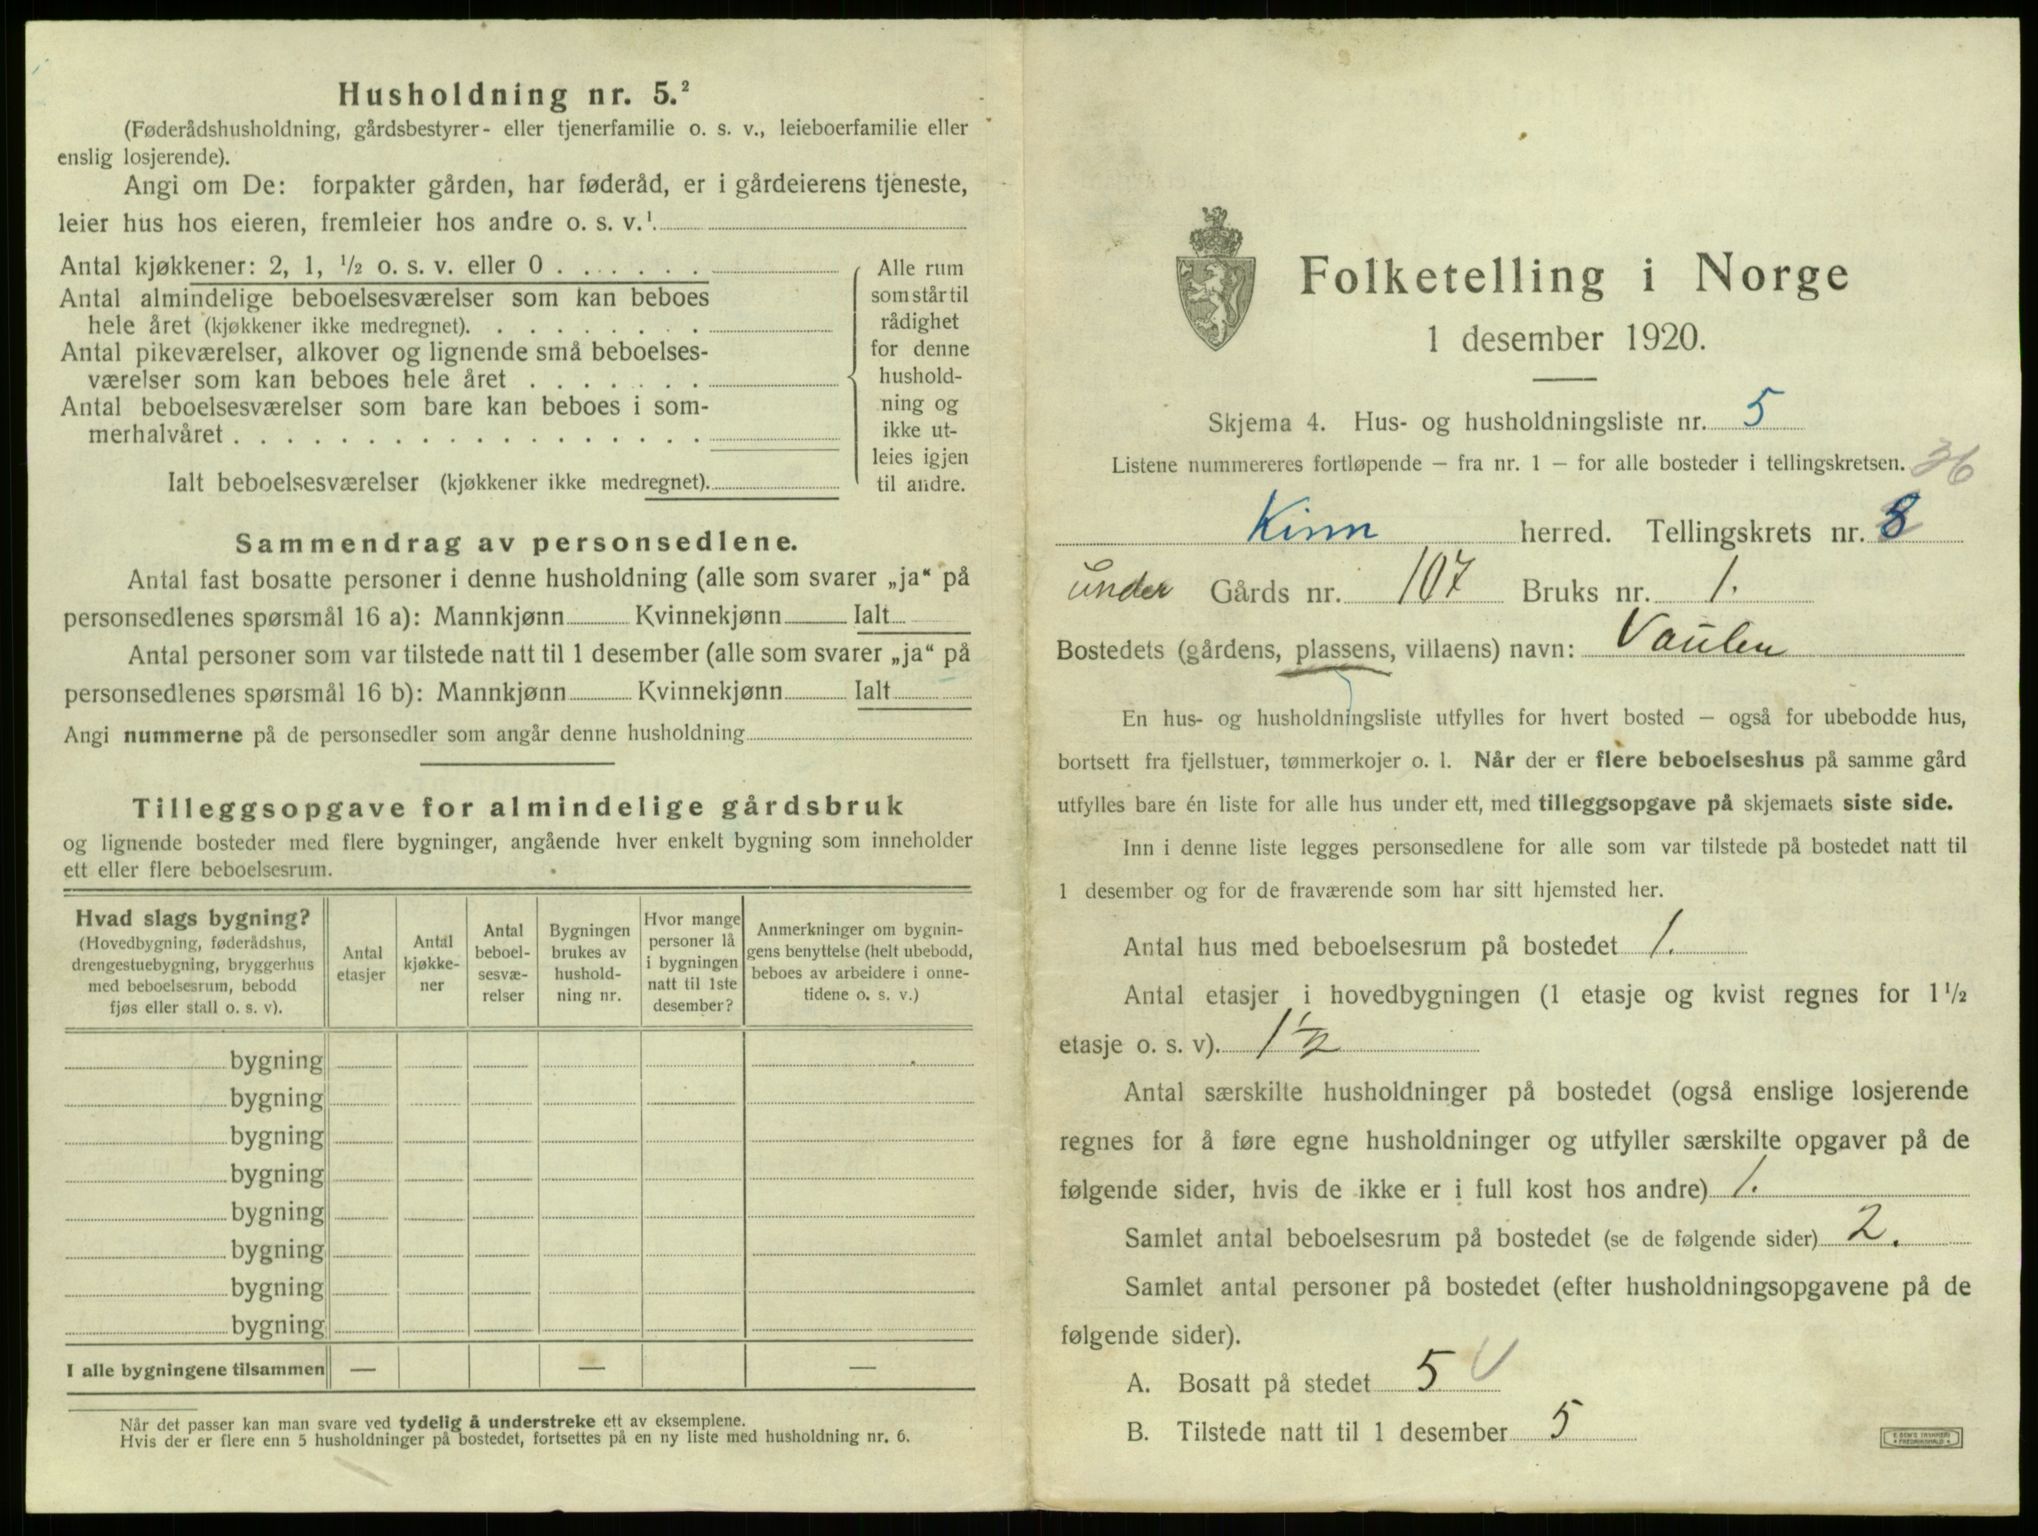 Husholdning nr. 5.²
(Føderådshusholdning, gårdsbestyrer- eller tjenerfamilie o. s. v., leieboerfamilie eller
enslig losjerende).
Angi om De: forpakter gården, har føderåd, er i gårdeierens tjeneste,
leier hus hos eieren, fremleier hos andre o. s. v.¹
Antal kjøkkener: 2, 1, ½ o. s. v. eller 0 . . . . . .
Antal almindelige beboelsesværelser som kan beboes
hele året (kjøkkener ikke medregnet). . . . . . . . .
Antal pikeværelser, alkover og lignende små beboelses-
værelser som kan beboes hele året . . . . . . .
Antal beboelsesværelser som bare kan beboes i som-
merhalvåret . . . . . . . . . . . . . . . . . .
Ialt beboelsesværelser (kjøkkener ikke medregnet).
Alle rum
som står til
rådighet
for denne
hushold-
ning og
ikke ut-
leies igjen
til andre.
Sammendrag av personsedlene.
Antal fast bosatte personer i denne husholdning (alle som svarer „ja“ på
personsedlenes spørsmål 16 a): Mannkjønn Kvinnekjønn Ialt
Antal personer som var tilstede natt til 1 desember (alle som svarer „ja“ på
personsedlenes spørsmål 16 b): Mannkjønn Kvinnekjønn Ialt
Angi nummerne på de personsedler som angår denne husholdning
Tilleggsopgave for almindelige gårdsbruk
og lignende bosteder med flere bygninger, angående hver enkelt bygning som inneholder
ett eller flere beboelsesrum.
Hvad slags bygning?
(Hovedbygning, føderådshus,
drengestuebygning, bryggerhus
med beboelsesrum, bebodd
fjøs eller stall o. s. v).
Antal
etasjer
Antal
kjøkke-
ner
Antal
beboel-
sesvæ-
relser
Bygningen
brukes av
hushold-
ning nr.
Hvor mange
personer lå
i bygningen
natt til 1ste
desember?
Anmerkninger om bygnin-
gens benyttelse (helt ubebodd,
beboes av arbeidere i onne-
tidene o. s. v.)
bygning
bygning
bygning
bygning
bygning
bygning
bygning
bygning
I alle bygningene tilsammen — — —
Når det passer kan man svare ved tydelig å understreke ett av eksemplene.
Hvis der er flere enn 5 husholdninger på bostedet, fortsettes på en ny liste med husholdning nr. 6.
Folketelling i Norge
1 desember 1920.
Skjema 4. Hus- og husholdningsliste nr. 5
Listene nummereres fortløpende – fra nr. 1 – for alle bosteder i tellingskretsen. 36
Kinn herred. Tellingskrets nr. 8
under Gårds nr. 107 Bruks nr. 1.
Bostedets (gårdens, plassens, villaens) navn: Vaulen
En hus- og husholdningsliste utfylles for hvert bosted – også for ubebodde hus,
bortsett fra fjellstuer, tømmerkojer o. l. Når der er flere beboelseshus på samme gård
utfylles bare én liste for alle hus under ett, med tilleggsopgave på skjemaets siste side.
Inn i denne liste legges personsedlene for alle som var tilstede på bostedet natt til
1 desember og for de fraværende som har sitt hjemsted her.
Antal hus med beboelsesrum på bostedet 1.
Antal etasjer i hovedbygningen (1 etasje og kvist regnes for 1½
etasje o. s. v). 1½
Antal særskilte husholdninger på bostedet (også enslige losjerende
regnes for å føre egne husholdninger og utfyller særskilte opgaver på de
følgende sider, hvis de ikke er i full kost hos andre) 1.
Samlet antal beboelsesrum på bostedet (se de følgende sider) 2.
Samlet antal personer på bostedet (efter husholdningsopgavene på de
følgende sider).
A. Bosatt på stedet 5
B. Tilstede natt til 1 desember 5